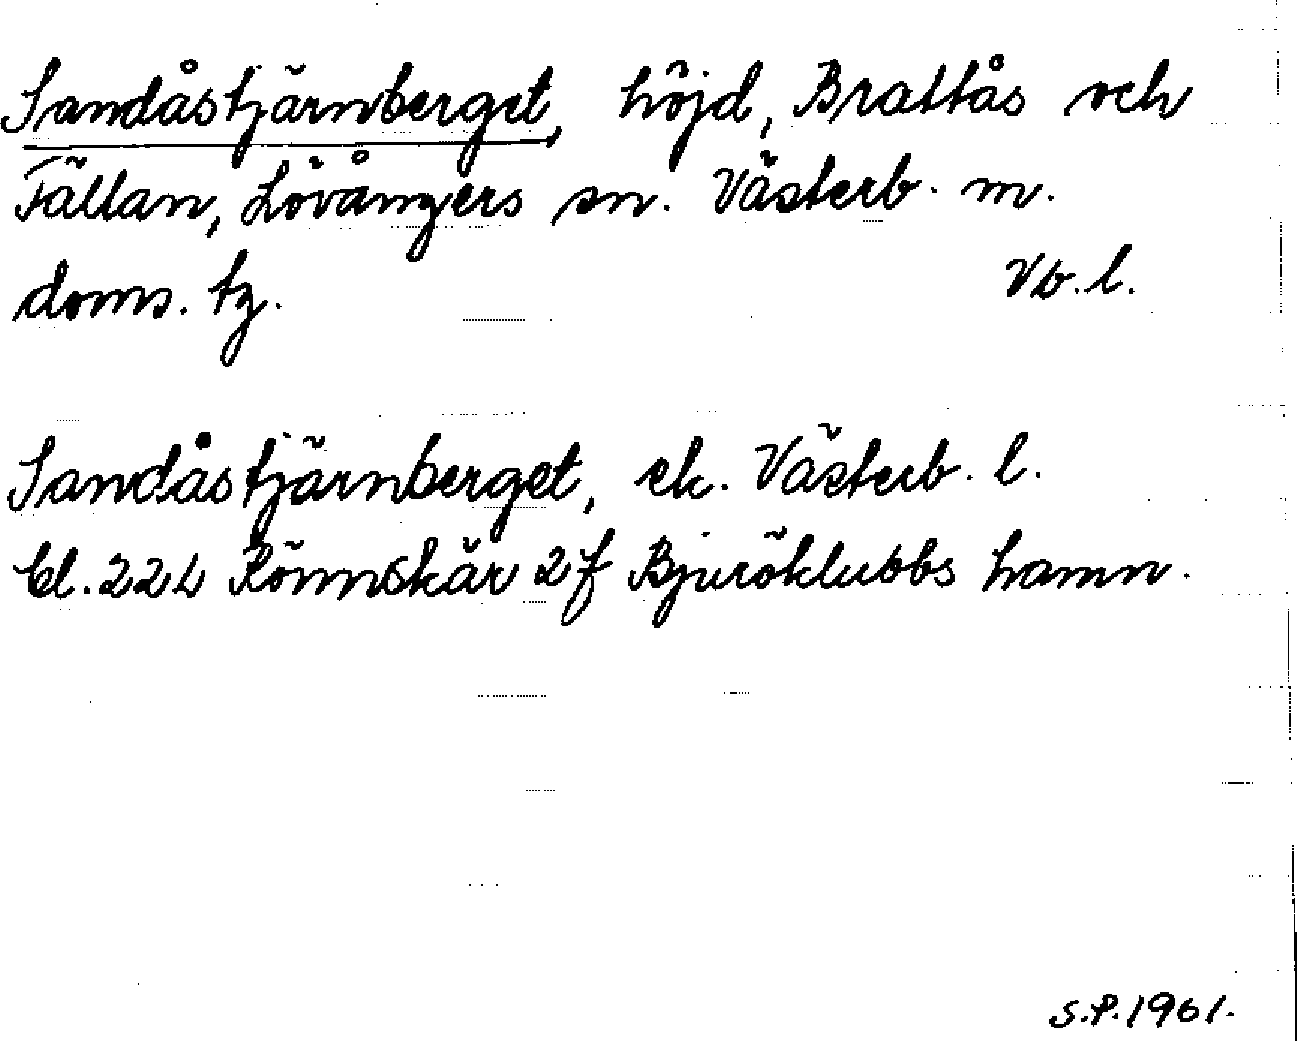 Sandåstjärnberget, höjd, Brattås och
Fällan, Lövångers sn. Västerb. m.
doms. tg. Vb. l.
Sandåstjärnberget, ek. Västerb. l.
Bl. 22L Rönnskär 2f Bjuröklubbs hamn.
S.P. 1961.